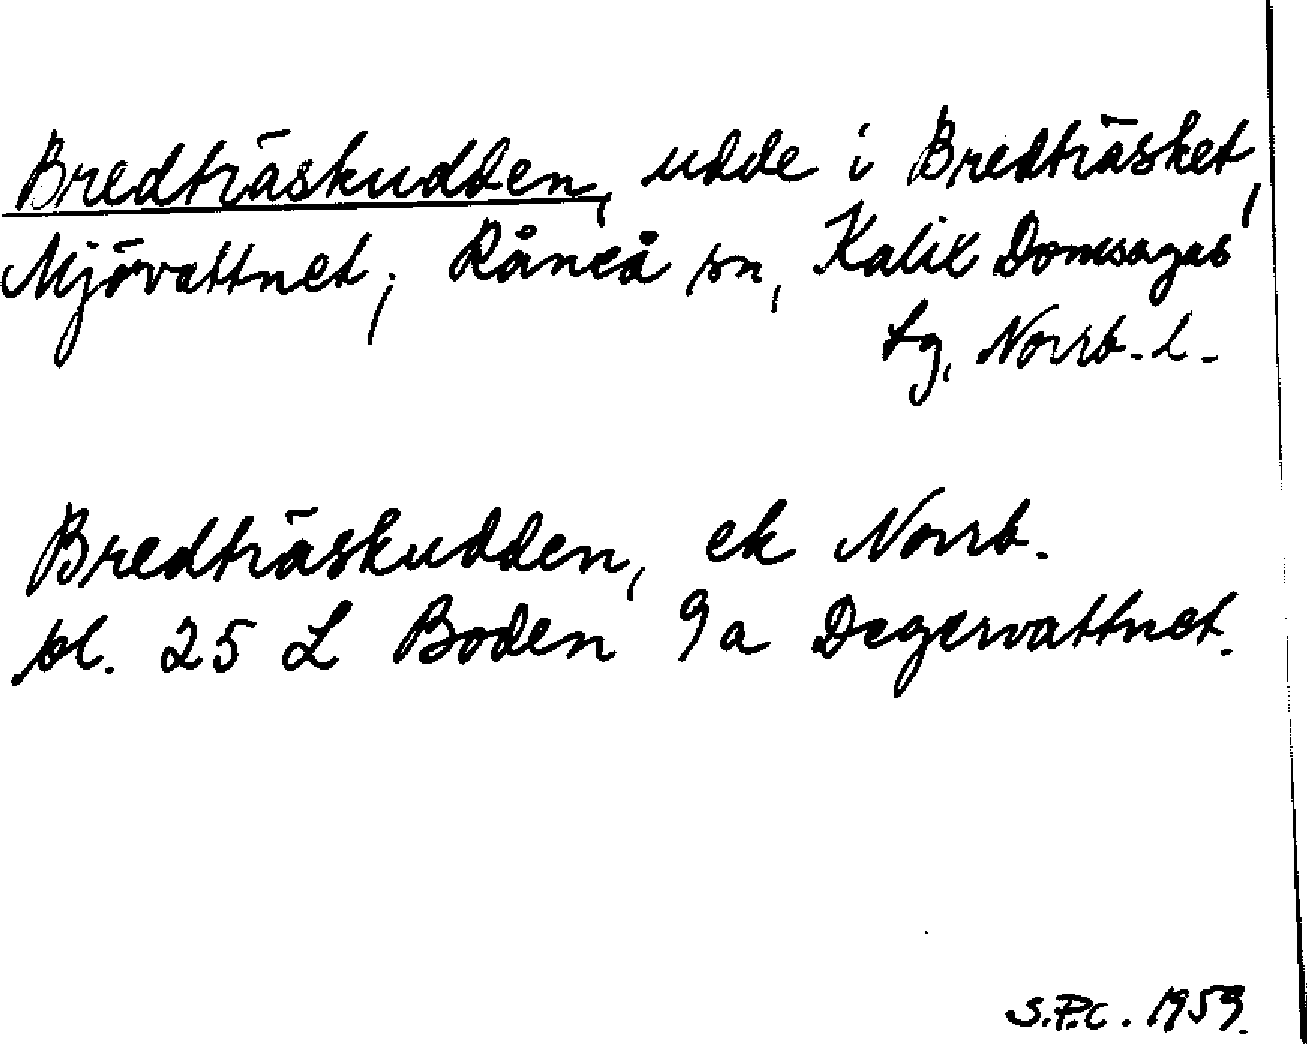 Bredträskudden, udde i Bredträsket,
Mjövattnet; Råneå sn, Kalix Domsagas
tg, Norrb. l.
Bredträskudden, ek Norrb.
bl. 25 L Boden 9a Degervattnet.
S.P.C. 1959.